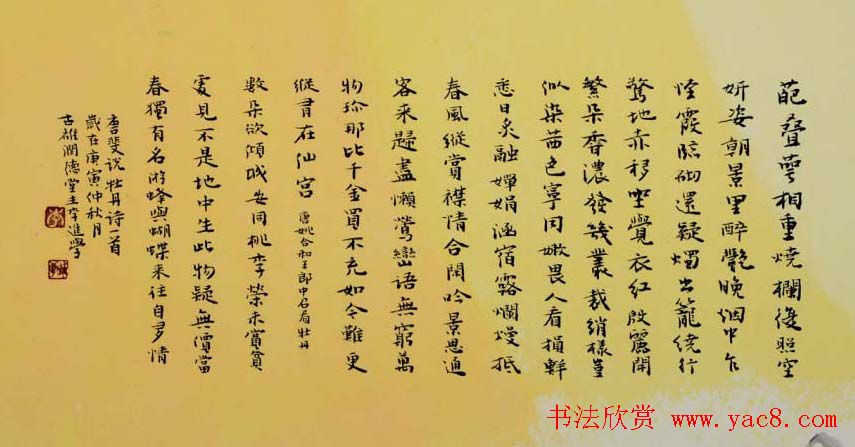 葩疊萼相重燒欄復照空
妍姿朝景里醉艷晚烟中乍
怪霞臨砌還疑燭出籠繞行
驚地赤移坐覺衣紅殷麗開
繁朵香濃發幾叢裁綃樣豈
似染茜色寧同嫩畏人看損鮮
愁日炙融嬋娟涵宿露爛熳抵
春風縱賞襟情合閑吟景思通
客来歸盡懶鶯戀語無窮萬
物珍那比千金買不充如今難更
縱有在仙宮 唐姚合和王郎中召看牡丹
數朵欲傾城安同桃李榮未嘗貧
處見不是地中生此物疑無價當
春獨有名游蜂與蝴蝶来往自多情
唐斐说牡丹诗一首
歲在庚寅仲秋月
古雄潤德堂主李進學
书法欣赏 www.yac8.com